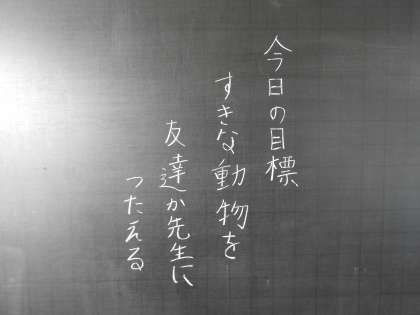 今日の目標
すきな動物を
友達か先生に
つたえる